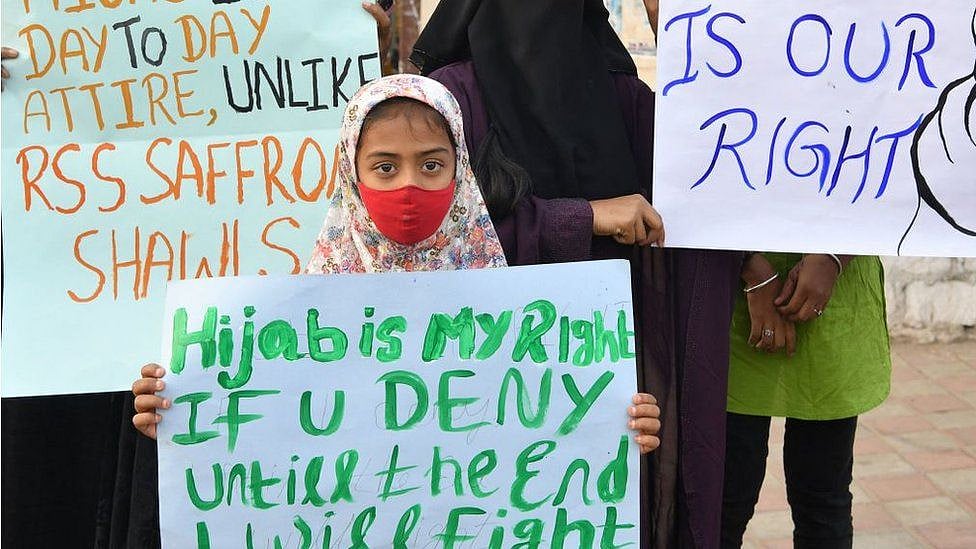 DAY TO DAY
ATTIRE, UNLIKE
RSS SAFFRON
SHAWLS
IS OUR
RIGHT
Hijab is My Right
IF U DENY
Untill the End
I will Fight